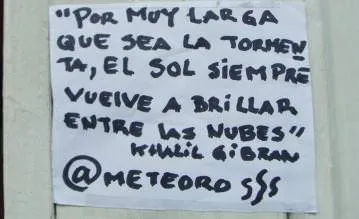 "POR MUY LARGA
QUE SEA LA TORMEN
TA, EL SOL SIEMPRE
VUELVE A BRILLAR
ENTRE LAS NUBES"
KHALIL GIBRAN
@METEOROSSS